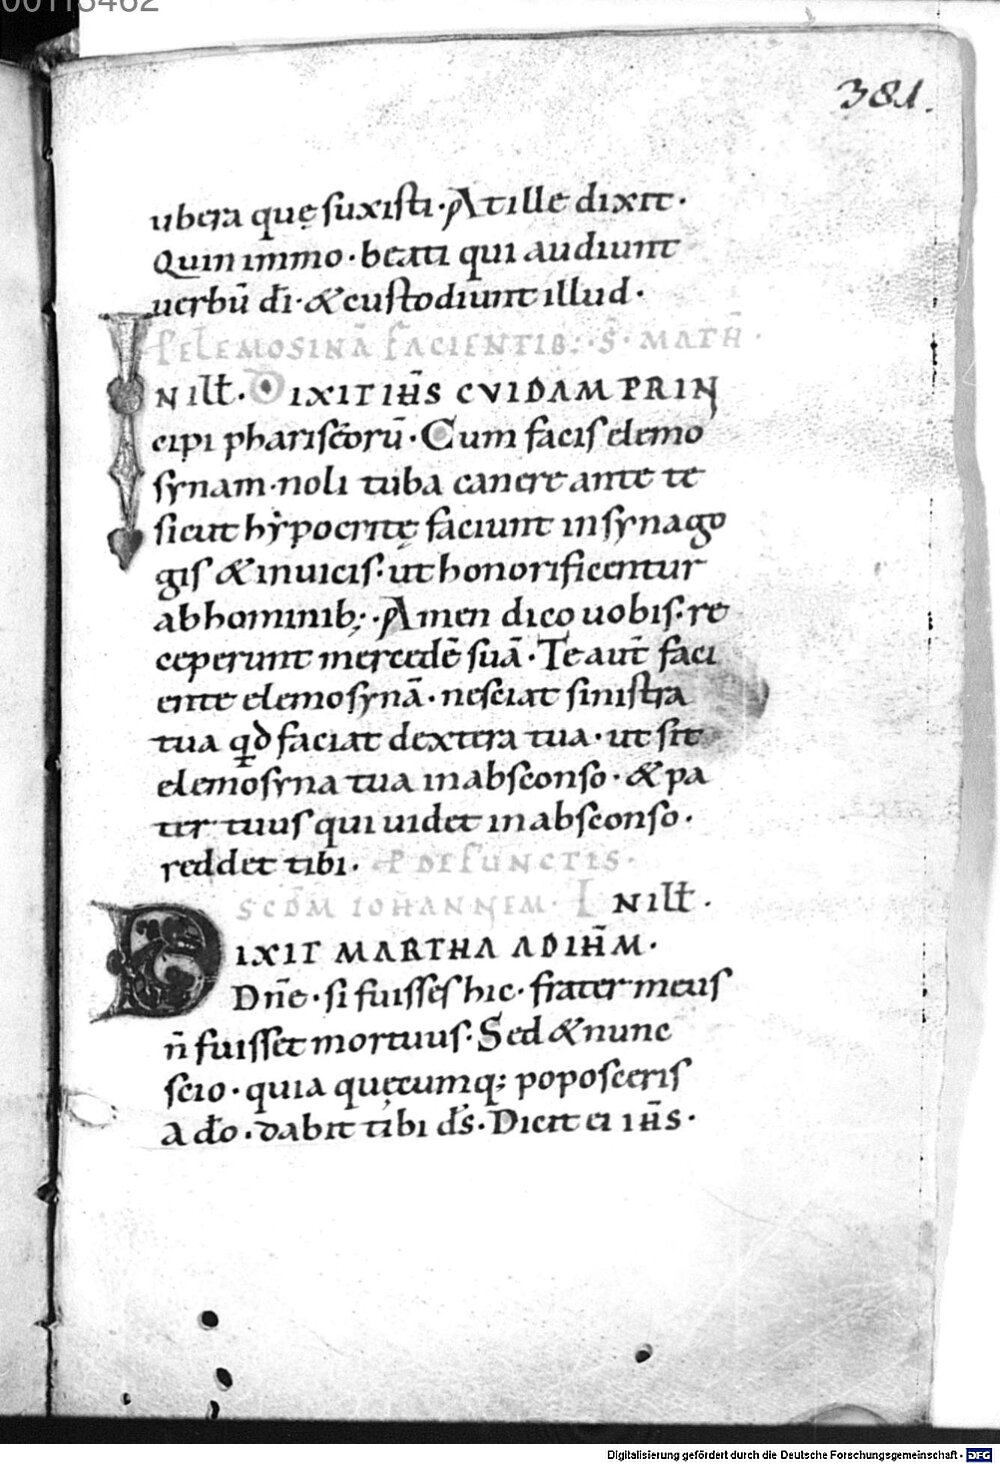 00113462
381.
ubera quę suxisti · At ille dixit ·
Quin immo · beati qui audiunt
uerbū dī · & custodiunt illud ·
P ELEMOSINĀ FACIENTIB; · S̄ · MATH̄ ·
IN ILLt̄ · DIXIT IH̄S CVIDAM PRIN
cipi phariseorū · Cum facis elemo
synam · noli tuba canere ante te
sicut hẏpocritę faciunt in synago
gis & in uicis · ut honorificentur
ab hominib; · Amen dico uobis · re
ceperunt mercedē suā · Te aut̄ faci
ente elemosynā · nesciat sinistra
tua qd̄ faciat dextera tua · ut sit
elemosyna tua in absconso · & pa
ter tuus qui uidet in absconso ·
reddet tibi · P DEFUNCTIS ·
SCDM̄ IOHANNEM · IN ILLt̄ ·
DIXIT MARTHA AD IH̄M ·
Dn̄e · si fuisses hic · frater meus
n̄ fuisset mortuus · Sed & nunc
scio · quia quęcumq; poposceris
a dō · dabit tibi ds̄ · Dicit ei ih̄s ·
Digitalisierung gefördert durch die Deutsche Forschungsgemeinschaft - DFG